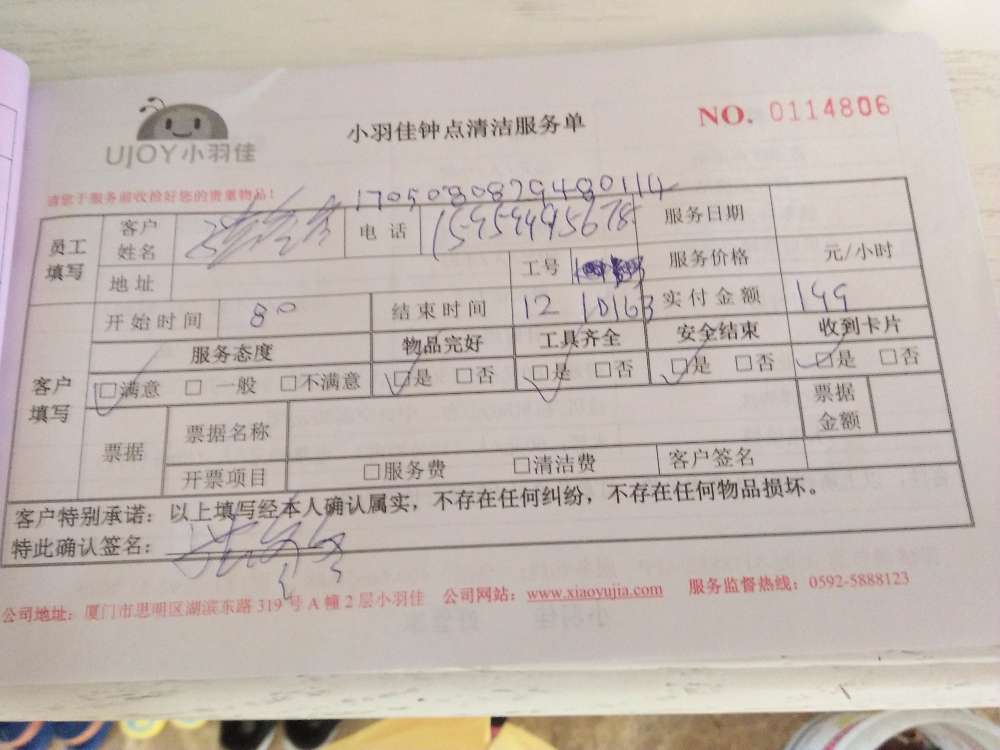 UJOY小羽佳
小羽佳钟点清洁服务单
NO. 0114806
请您于服务前收捡好您的贵重物品！
1705080879480114
员工填写 客户姓名 电话 服务日期
地址 工号 服务价格 元/小时
开始时间 80 结束时间 12 10163 实付金额 199
客户填写 服务态度 物品完好 工具齐全 安全结束 收到卡片
□满意 □一般 □不满意 □是 □否 □是 □否 □是 □否 □是 □否
票据 票据名称 票据金额
开票项目 □服务费 □清洁费 客户签名
客户特别承诺：以上填写经本人确认属实，不存在任何纠纷，不存在任何物品损坏。
特此确认签名：
公司地址：厦门市思明区湖滨东路319号A幢2层小羽佳 公司网站：www.xiaoyujia.com 服务监督热线：0592-5888123